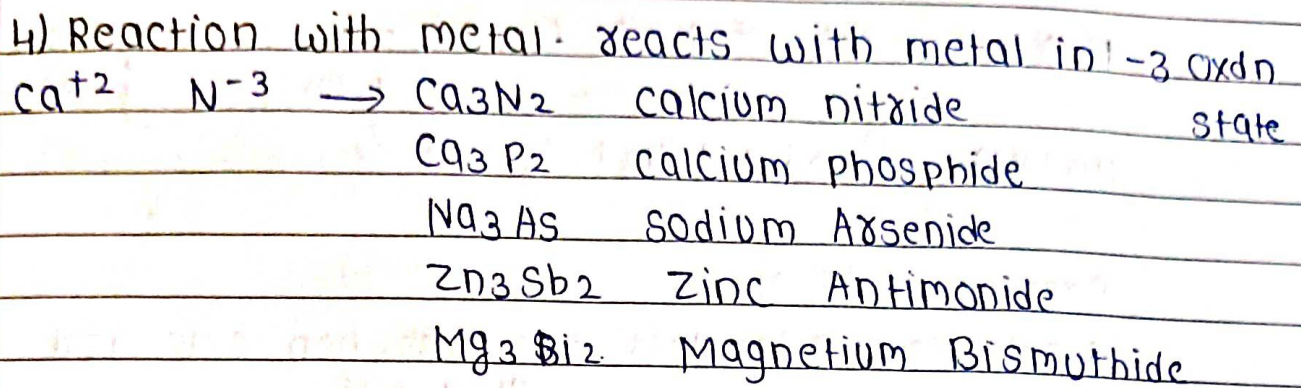 4) Reaction with metal. reacts with metal in -3 oxdn state
Ca+2 N-3 → Ca3N2 calcium nitride
Ca3P2 calcium phosphide
Na3As sodium Arsenide
Zn3Sb2 Zinc Antimonide
Mg3Bi2. Magnetium Bismuthide